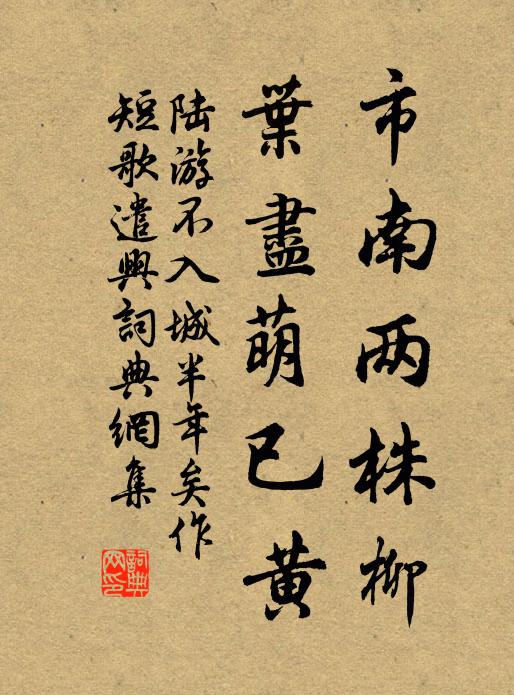 市南两株柳
葉盡萌已黄
陆游不入城半年矣作
短歌遣興詞典網集
詞典网印